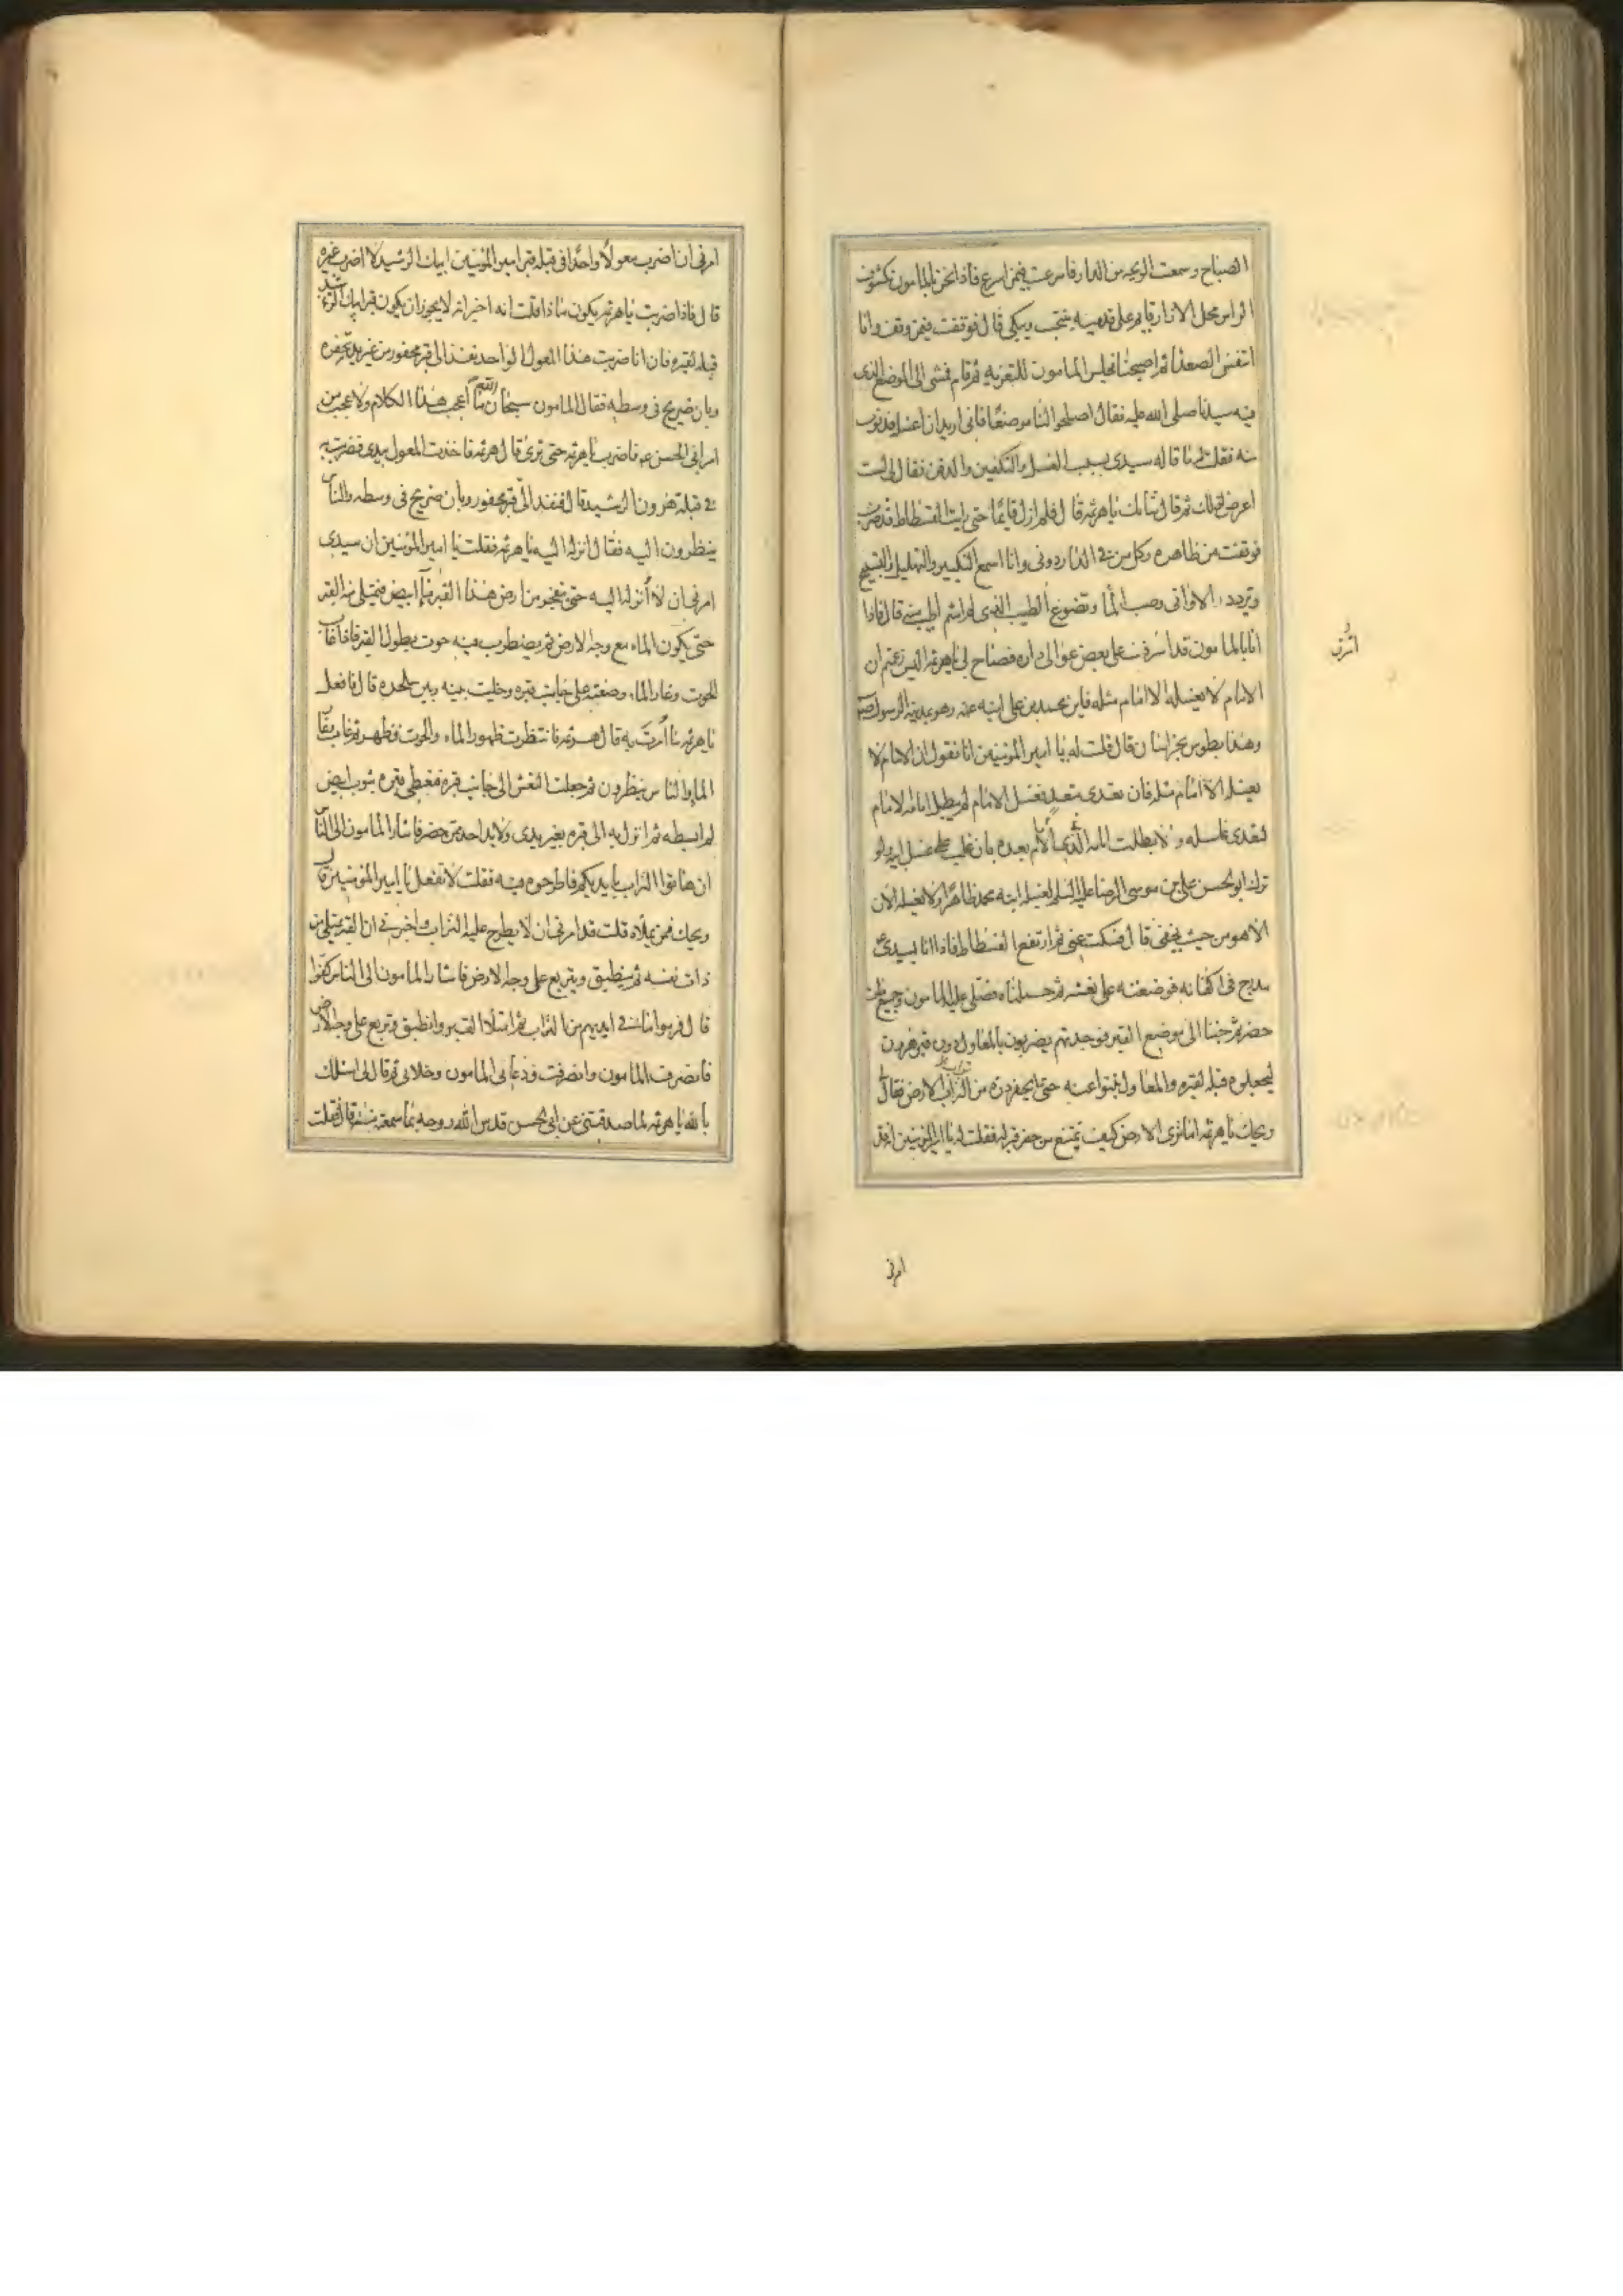 الصياح وسمعت الوجبة من الدار فاسرعت فيمن اسرع فاذا نحن بالمامون مكشوف
الراس محلل الازرار قايم على قدميه ينتحب ويبكي قال فوقفت فيمن وقف وانا
اتنفس الصعدا ثم اصبحنا فجلس المامون للتعزيه ثم قام فمشى الى الموضع الذى
فيه سيدنا صلى الله عليه فقال اصلحوا لنا موضعًا فانى اريد ان اغسله فدنوت
منه فقلت له ما قاله سيدى بسبب الغسل والتكفين والدفن فقال لى لست
اعرض لذلك ثم قال شانك يا هرثمه قال فلم ازل قايمًا حتى رايت الفسطاط قد ضرب
فوقفت من ظاهره وكل من فى الدار دونى وانا اسمع التكبير والتهليل والتسبيح
وتردد الاوانى وصب الماء وتضوع الطيب الذى لم اشم اطيب منه قال فاذا
انا بالمامون قد اشرف على بعض عوالى داره فصاح لى يا هرثمه اليس زعمتم ان
الامام لا يغسله الا امام مثله فاين محمد بن على ابنه عنه وهو بمدينة الرسول
وهذا بطوس بخراسان قال قلت له يا امير المؤمنين انا نقول ان الامام لا
يغسله الا امام مثله فان تعدى متعد بغسل الامام لم يبطل امامة الامام
لتعدى غاسله ولا بطلت امامة الذى بعده بان غلب على غسل ابيه ولو
ترك ابو الحسن على بن موسى الرضا عليه السلم لغسله ابنه محمد ظاهرًا ولا يغسله الان
الا هو من حيث يخفى قال فسكت عنى ثم ارتفع الفسطاط فاذا انا بسيدى
مدرج فى اكفانه فوضعته على نعشه ثم حملناه فصلى عليه المامون وجميع من
حضر ثم جئنا الى موضع القبر فوجدتهم يضربون بالمعاول دون قبر هرون
ليجعلوه قبلة لقبره والمعاول تنبوا عنه حتى ما يحفر ذره من تراب الارض فقال
ويحك يا هرثمه اما ترى الارض كيف تمتنع من حفر قبر له فقلت له يا امير المؤمنين انه قد
اشرف
امرنى
امرنى ان اضرب معولًا واحدًا فى قبلة قبر امير المؤمنين ابيك الرشيد لا اضرب غيره
قال فاذا ضربت يا هرثمه يكون ماذا قلت انه اخبر انه لا يجوز ان يكون قبر ابيك الرشيد
قبلة لقبره فان انا ضربت هذا المعول الواحد نفذ الى قبر محفور من غير يد تحفره
وبان ضريح فى وسطه فقال المامون سبحان الله ما اعجب هذا الكلام ولا عجب من
امر ابى الحسن فاضرب يا هرثمه حتى نرى قال هرثمه فاخذت المعول بيدى فضربت به
فى قبلة هرون الرشيد قال فنفذ الى قبر محفور وبان ضريح فى وسطه والناس
ينظرون اليه فقال انزله اليه يا هرثمه فقلت يا امير المؤمنين ان سيدى
امرنى ان لا أنزله اليه حتى ينفجر من ارض هذا القبر ماء ابيض فيمتلى منه القبر
حتى يكون الماء مع وجه الارض ثم يضطرب فيه حوت بطول القبر فاذا غاب
الحوت وغار الماء وضعته على جانب قبره وخليت بينه وبين ملحده قال فافعل
يا هرثمه ما أمرت به قال هرثمه فانتظرت ظهور الماء والحوت فظهر ثم غاب وغار
الماء والناس ينظرون ثم جعلت النعش الى جانب قبره فغطى قبره بثوب ابيض
لم ابسطه ثم انزل به الى قبره بغير يدى ولا يد احد ممن حضر فاشار المامون الى الناس
ان هاتوا التراب بايديكم فاطرحوه فيه فقلت لا تفعل يا امير المؤمنين قال
ويحك فمن يملاه قلت قد امرنى ان لا يطرح عليه التراب واخبرنى ان القبر يمتلى من
ذات نفسه ثم ينطبق ويتربع على وجه الارض فاشار المامون الى الناس كفوا
قال فرموا ما فى ايديهم من التراب ثم امتلا القبر وانطبق وتربع على وجه الارض
فانصرف المامون وانصرفت فدعانى المامون وخلا بى ثم قال لى اسئلك
بالله يا هرثمه لما صدقتنى عن ابى الحسن قدس الله روحه بما سمعته منه قال فقلت